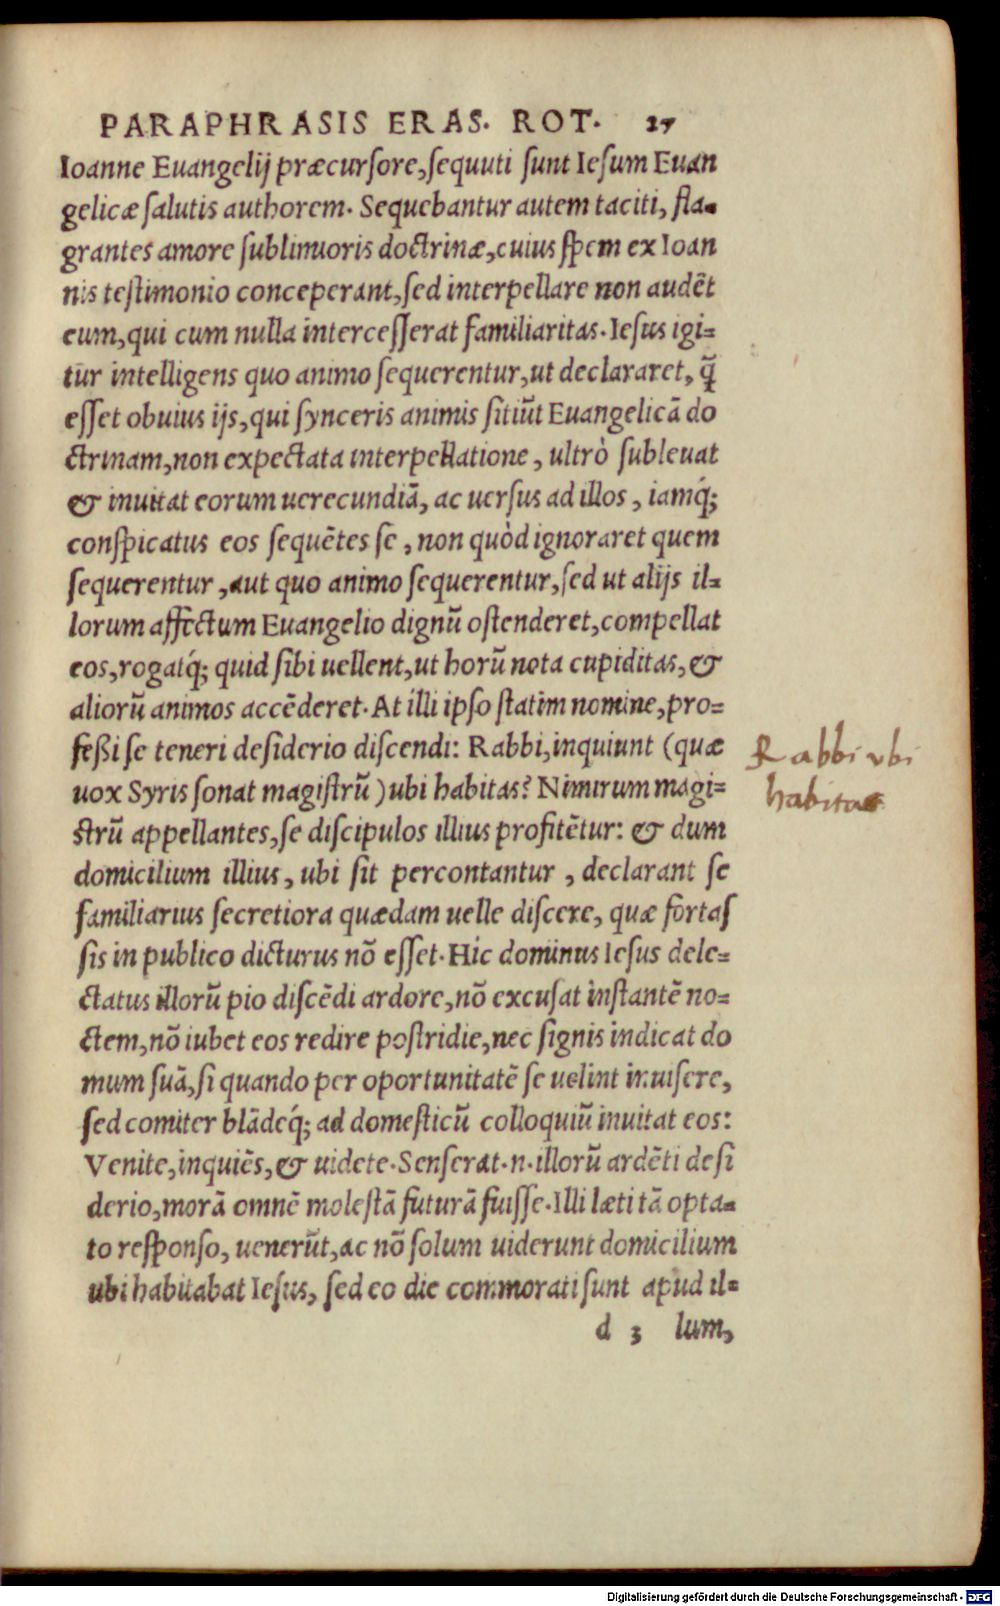 PARAPHRASIS ERAS. ROT. 27
Ioanne Euangelij præcursore, sequuti sunt Iesum Euan
gelicæ salutis authorem. Sequebantur autem taciti, fla-
grantes amore sublimioris doctrinæ, cuius spem ex Ioan
nis testimonio conceperant, sed interpellare non audēt
eum, qui cum nulla intercesserat familiaritas. Iesus igi-
tur intelligens quo animo sequerentur, ut declararet, q̃
esset obuius ijs, qui synceris animis sitiūt Euangelicā do
ctrinam, non expectata interpellatione, ultrò subleuat
& inuitat eorum uerecundiā, ac uersus ad illos, iamq́;
conspicatus eos sequētes se, non quòd ignoraret quem
sequerentur, aut quo animo sequerentur, sed ut alijs il-
lorum affectum Euangelio dignū ostenderet, compellat
eos, rogatq́; quid sibi uellent, ut horū nota cupiditas, &
aliorū animos accēderet. At illi ipso statim nomine, pro-
feßi se teneri desiderio discendi: Rabbi, inquiunt (quæ
uox Syris sonat magistrū) ubi habitas? Nimirum magi-
strū appellantes, se discipulos illius profitētur: & dum
domicilium illius, ubi sit percontantur, declarant se
familiarius secretiora quædam uelle discere, quæ fortas
sis in publico dicturus nō esset. Hic dominus Iesus dele-
ctatus illorū pio discēdi ardore, nō excusat instantē no-
ctem, nō iubet eos redire postridie, nec signis indicat do
mum suā, si quando per oportunitatē se uelint inuisere,
sed comiter blādeq́; ad domesticū colloquiū inuitat eos:
Venite, inquiēs, & uidete. Senserat .n. illorū ardēti desi
derio, morā omnē molestā futurā fuisse. Illi læti tā opta-
to responso, uenerūt, ac nō solum uiderunt domicilium
ubi habitabat Iesus, sed eo die commorati sunt apud il-
d 3 lum,
Rabbi vbi
habitas
Digitalisierung gefördert durch die Deutsche Forschungsgemeinschaft - DFG